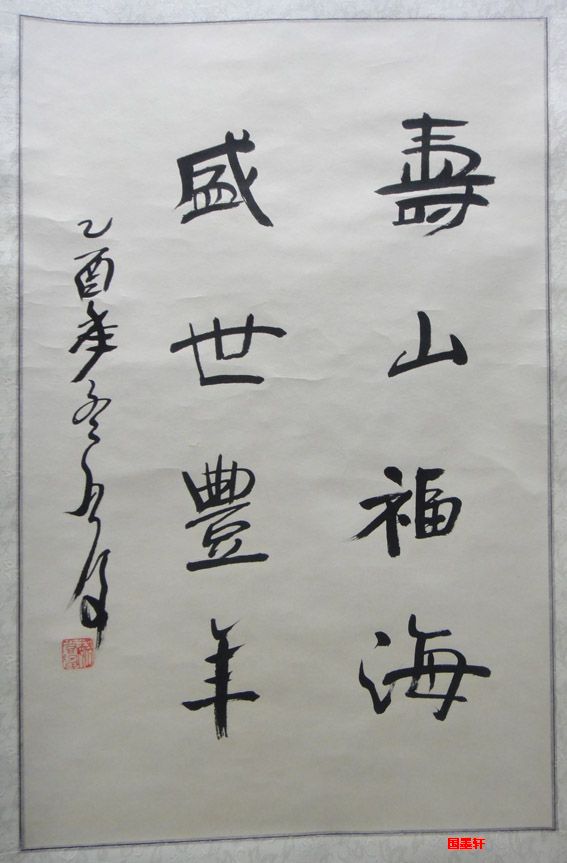 壽山福海
盛世豐年
乙酉年冬月
国墨轩